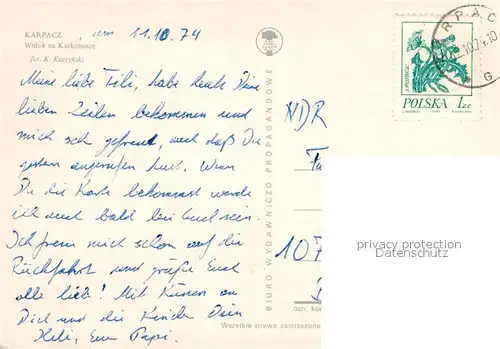 KARPACZ
Widok na Karkonosze
fot. K. Kaczyński
am 11.10.74
Meine liebe Fili, habe heute Deine
lieben Zeilen bekommen und
mich sehr gefreut, auch daß Du
gestern angerufen hast. Wenn
Du die Karte bekommst werde
ich auch bald bei Euch sein.
Ich freue mich schon auf die
Rückfahrt und grüße Euch
alle lieb! Mit Küssen an
Dich und die Kinder Dein
Heli, Euer Papi.
BIURO WYDAWNICZO PROPAGANDOWE
Wszelkie prawa zastrzeżone
KARPACZ
10.74.10
G
POLSKA 1 ZŁ
DDR
107
privacy protection
Datenschutz